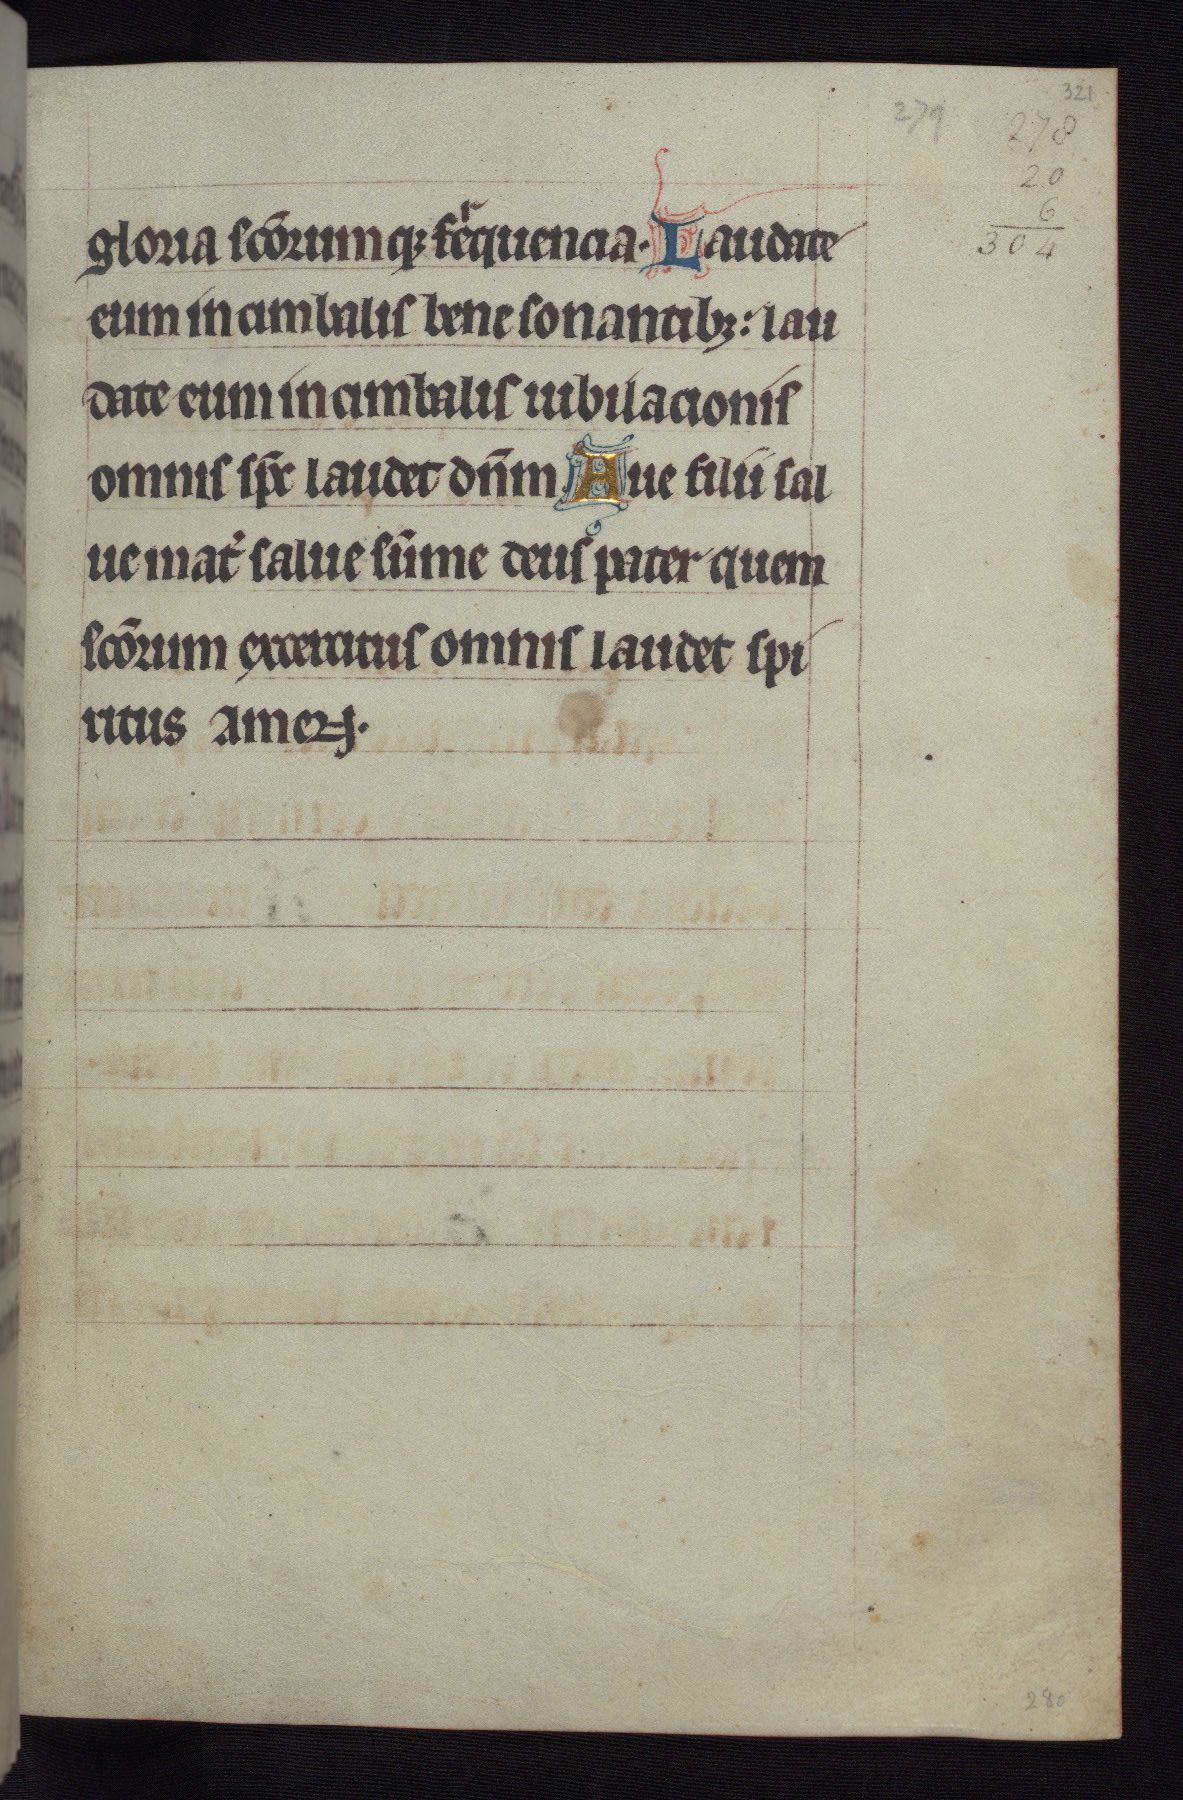 321
279
278
20
6
304
gloria sc̄orumq; freq̇uencia. Laudate
eum in cimbalis bene sonantib; : lau
date eum in cimbalis iubilacionis
omnis sp̄c laudet dn̄m Aue filii sal
ue mat̾ salue sūme deus pater quem
sc̄orum excercitus omnis laudet spi
ritus amen.
280